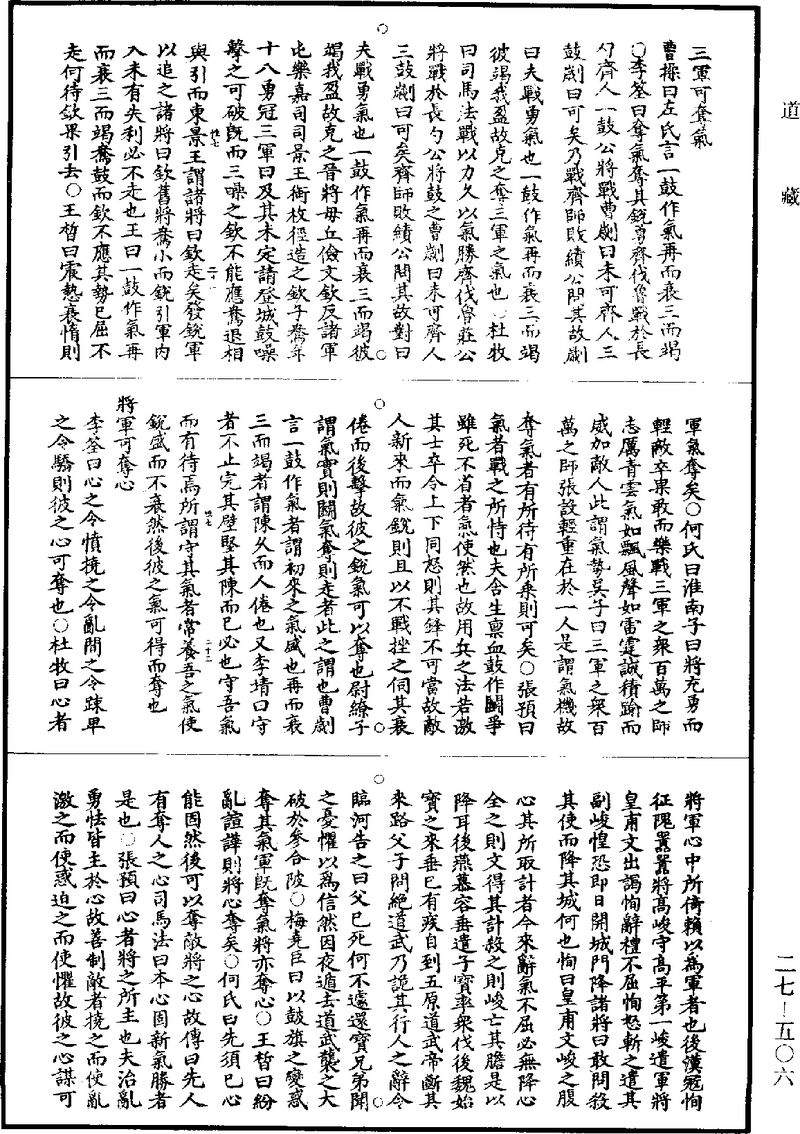 道藏
三軍可奪氣
曹操曰左氏言一鼓作氣再而衰三而竭
○李筌曰奪氣奪其銳勇齊伐魯戰於長
勺齊人一鼓公將戰曹劌曰未可齊人三
鼓劌曰可矣乃戰齊師敗績公問其故劌
曰夫戰勇氣也一鼓作氣再而衰三而竭
彼竭我盈故克之奪三軍之氣也○杜牧
曰司馬法戰以力久以氣勝齊伐魯莊公
將戰於長勺公將鼓之曹劌曰未可齊人
三鼓劌曰可矣齊師敗績公問其故對曰
夫戰勇氣也一鼓作氣再而衰三而竭彼
竭我盈故克之晉將毋丘儉文欽反諸軍
屯樂嘉司司景王銜枚徑造之欽子鴦年
十八勇冠三軍曰及其未定請登城鼓噪
擊之可破既而三噪之欽不能應鴦退相
與引而東景王謂諸將曰欽走矣發銳軍
以追之諸將曰欽舊將鴦小而銳引軍內
入未有失利必不走也王曰一鼓作氣再
而衰三而竭鴦鼓而欽不應其勢已屈不
走何待欽果引去○王晳曰震熱衰惰則
軍氣奪矣○何氏曰淮南子曰將充勇而
輕敵卒果敢而樂戰三軍之衆百萬之師
志厲青雲氣如飄風聲如雷霆誠積踰而
威加敵人此謂氣勢吳子曰三軍之衆百
萬之師張設輕重在於一人是謂氣機故
奪氣者有所待有所乘則可矣○張預曰
氣者戰之所恃也夫含生稟血鼓作鬪爭
雖死不省者氣使然也故用兵之法若激
其士卒令上下同怒則其鋒不可當故敵
人新來而氣銳則且以不戰挫之伺其衰
倦而後擊故彼之銳氣可以奪也尉繚子
謂氣實則鬪氣奪則走者此之謂也曹劌
言一鼓作氣者謂初來之氣盛也再而衰
三而竭者謂陳久而人倦也又李靖曰守
者不止完其壁堅其陳而已必也守吾氣
而有待焉所謂守其氣者常養吾之氣使
銳盛而不衰然後彼之氣可得而奪也
將軍可奪心
李筌曰心之令憤撓之令亂間之令疎卑
之令驕則彼之心可奪也○杜牧曰心者
將軍心中所倚賴以為軍者也後漢寇恂
征隗囂囂將高峻守高平第一峻遣軍將
皇甫文出謁恂辭禮不屈恂怒斬之遣其
副峻惶恐即日開城門降諸將曰敢問殺
其使而降其城何也恂曰皇甫文峻之腹
心其所取計者今來辭氣不屈必無降心
全之則文得其計殺之則峻亡其膽是以
降耳後燕慕容垂遣子寶率衆伐後魏始
寶之來垂已有疾自到五原道武帝斷其
來路父子問絕道武乃詭其行人之辭令
臨河告之曰父已死何不遽還寶兄弟聞
之憂懼以為信然因夜遁去道武襲之大
破於參合陂○梅堯臣曰以鼓旗之變惑
奪其氣軍既奪氣將亦奪心○王晳曰紛
亂諠譁則將心奪矣○何氏曰先須己心
能固然後可以奪敵將之心故傳曰先人
有奪人之心司馬法曰本心固新氣勝者
是也○張預曰心者將之所主也夫治亂
勇怯皆主於心故善制敵者撓之而使亂
激之而使惑迫之而使懼故彼之心謀可
二七—五〇六